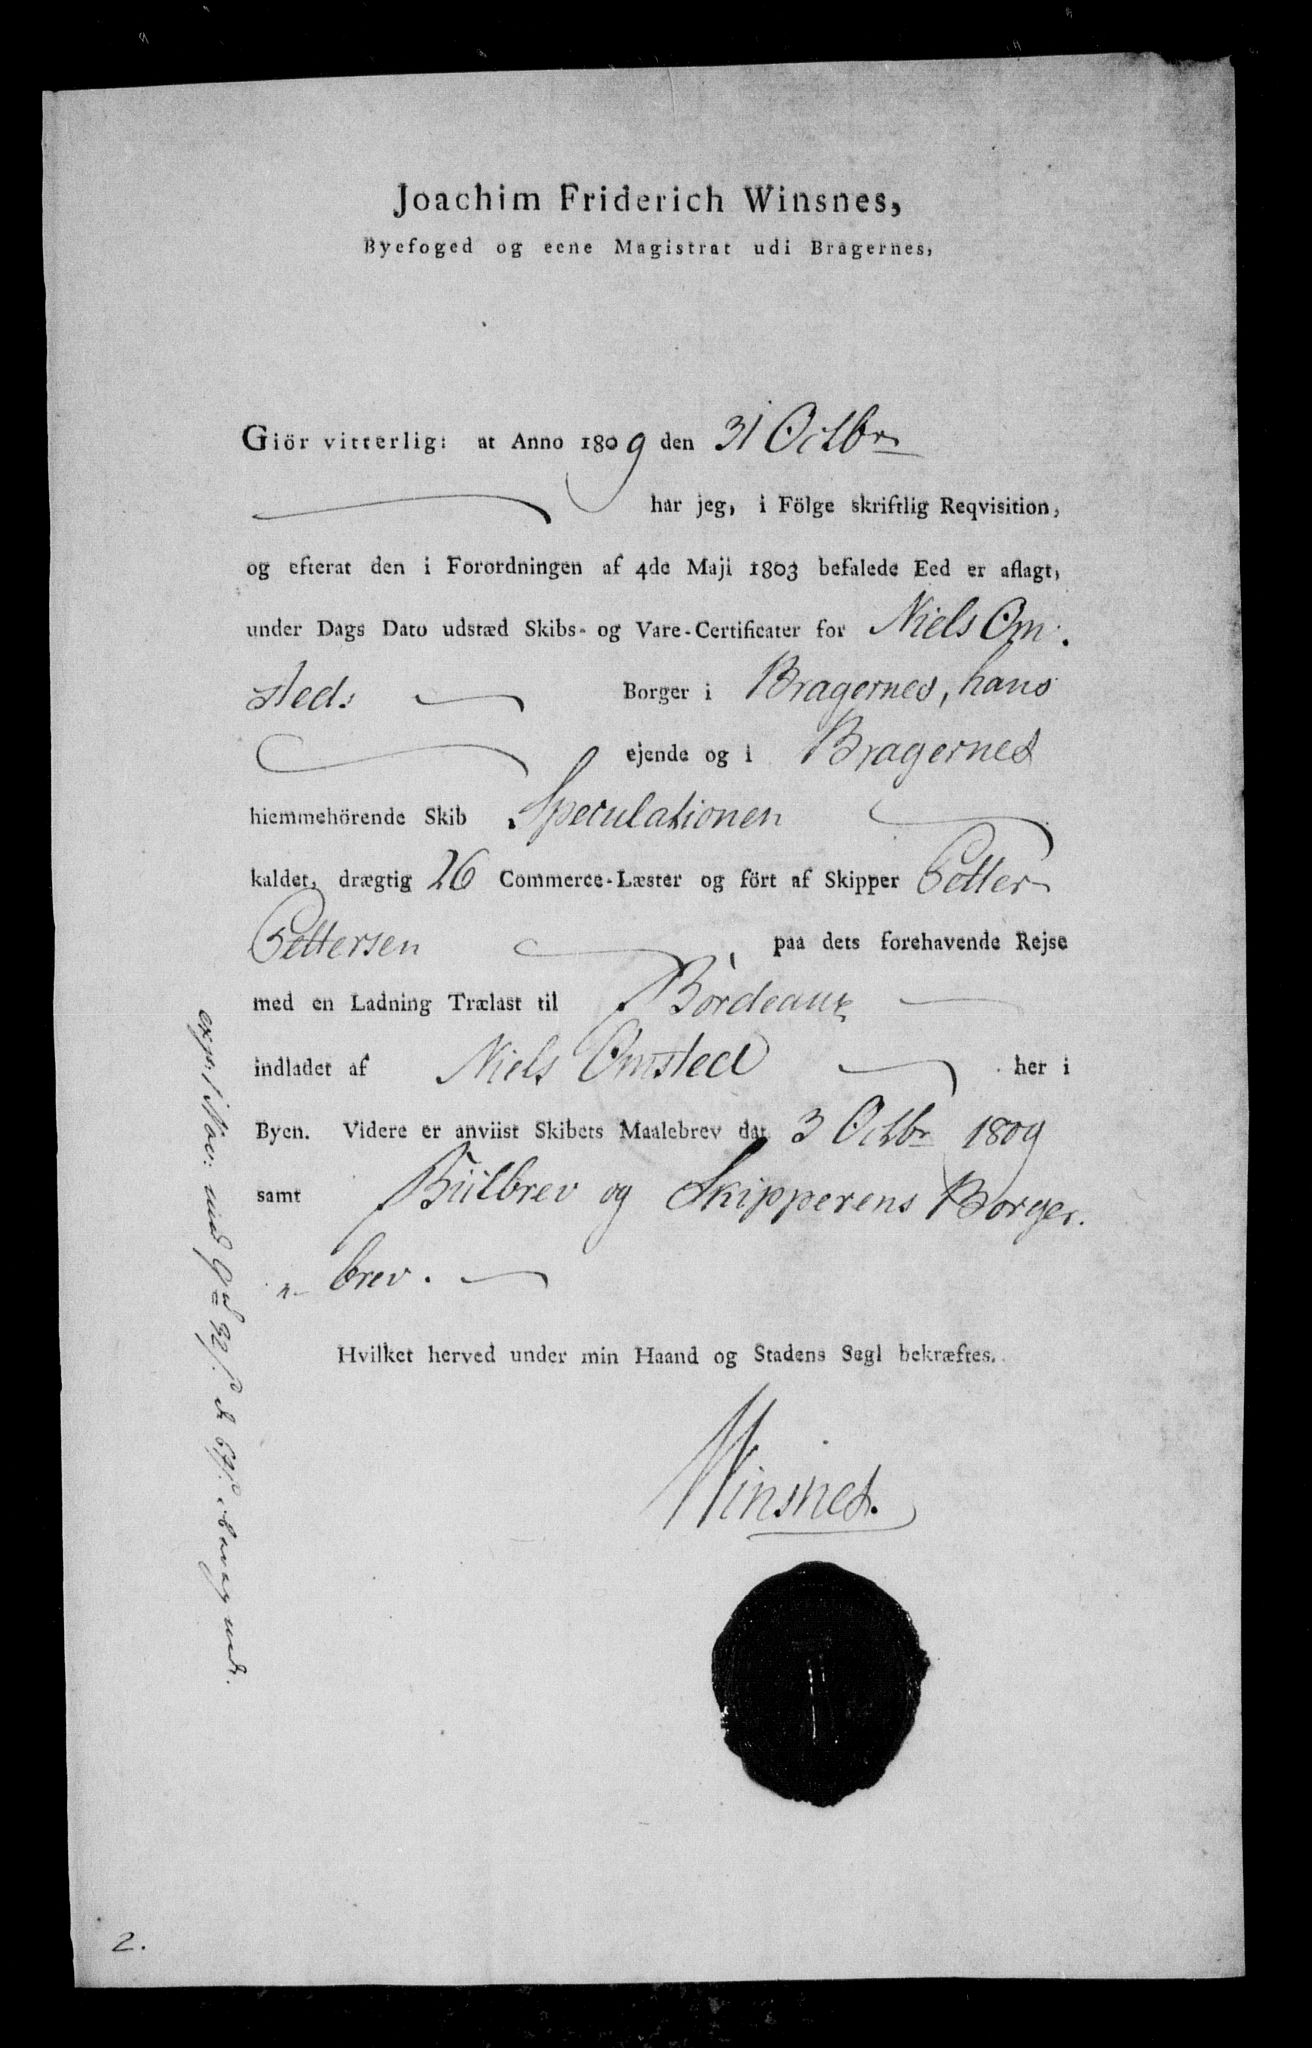 Joachim Friderich Winsnes,
Byefoged og eene Magistrat udi Bragernes,
Giör vitterlig: at Anno 1809 den 31 Octbr
har jeg, i Fölge skriftlig Reqvisition,
og efterat den i Forordningen af 4de Maji 1803 befalede Eed er aflagt,
under Dags Dato udstæd Skibs- og Vare-Certificater for Niels Om-
steds Borger i Bragernes, hans
ejende og i Bragernes
hiemmehörende Skib Speculationen
kaldet, drægtig 26 Commerce-Læster og fört af Skipper Petter
Pettersen, paa dets forehavende Rejse
med en Ladning Trælast til Bordeaux
indladet af Niels Omsted her i
Byen. Videre er anviist Skibets Maalebrev dat. 3 Octbr 1809
samt Biilbrev og Skipperens Borger-
brev.
Hvilket herved under min Haand og Stadens Segl bekræftes.
Winsnes.
2.